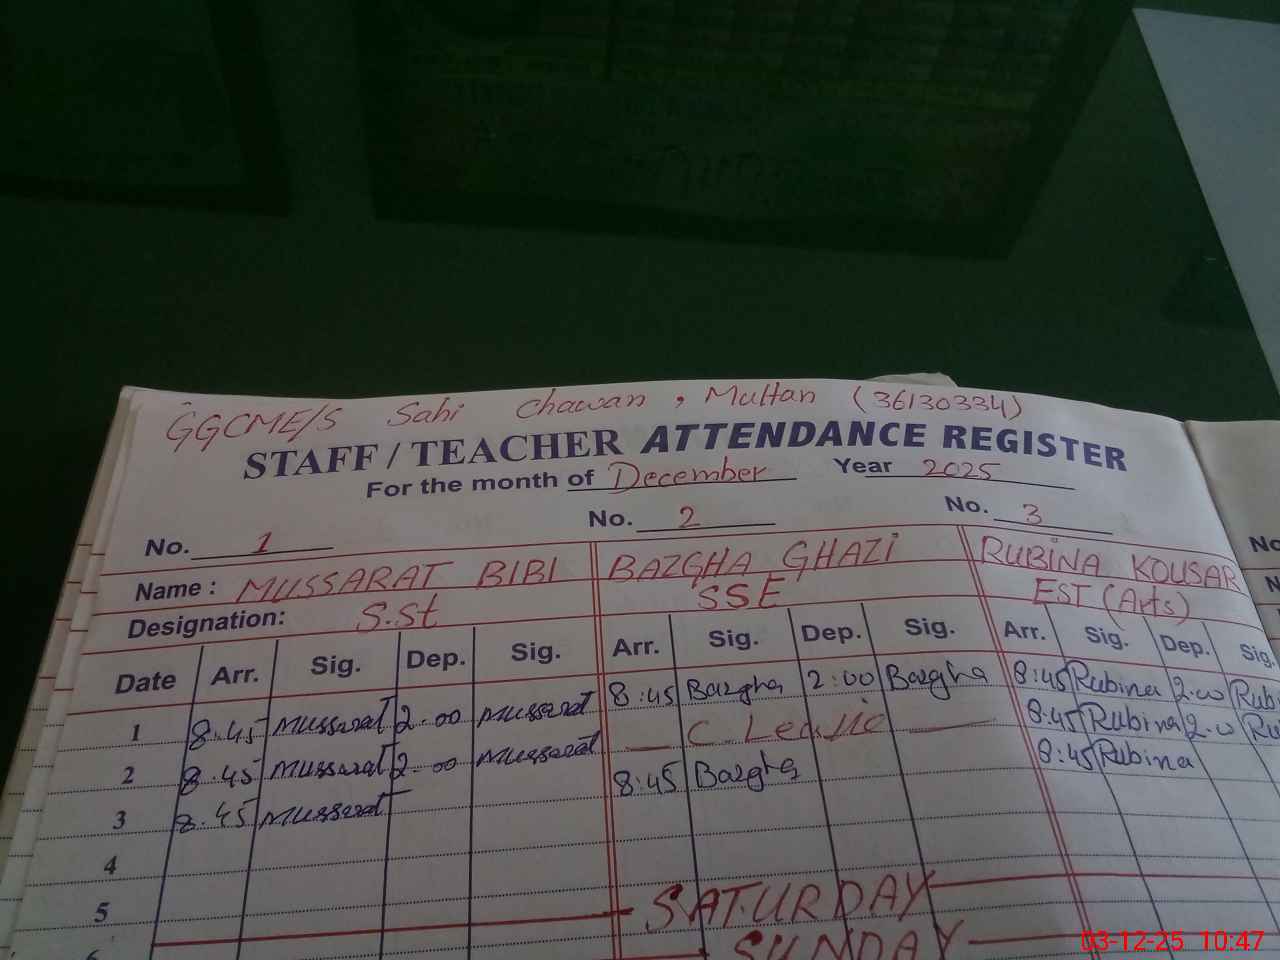 GGCME/S Sahi Chawan, Multan (36130334)
STAFF / TEACHER ATTENDANCE REGISTER
For the month of December Year 2025
No. 1 No. 2 No. 3
Name: MUSSARAT BIBI BAZGHA GHAZi RUBINA KOUSAR
Designation: S.St SSE EST (Arts)
Date Arr. Sig. Dep. Sig. Arr. Sig. Dep. Sig. Arr. Sig. Dep. Sig.
1 8.45 Mussarat 2.00 Mussarat 8:45 Bazgha 2:00 Bazgha 8:45 Rubina 2.00 Rub
2 8.45 Mussarat 2.00 Mussarat C. Leave 8.45 Rubina 2.0 Ru
3 8.45 Mussarat 8:45 Bazgha 8:45 Rubina
4
5
SATURDAY
6
SUNDAY
No
N
03-12-25 10:47